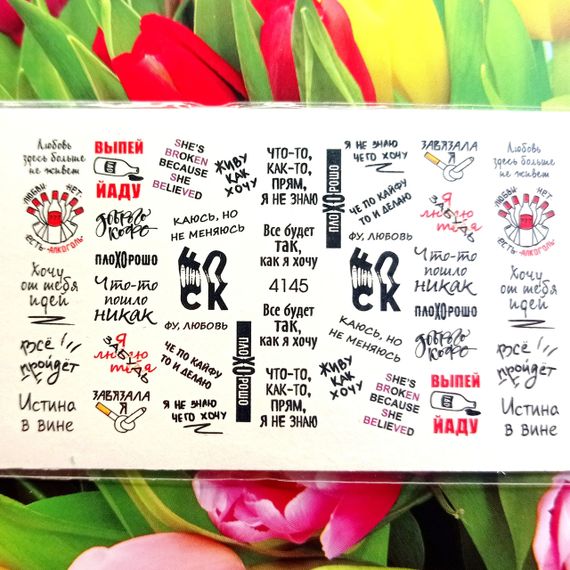 Любовь
здесь больше
не живет
ЛЮБВИ НЕТ
ЕСТЬ АЛКОГОЛЬ
Хочу
от тебя
идей
Всё
пройдёт
Истина
в вине
ВЫПЕЙ
ЙАДУ
доброго
кофе
ПЛОХОРОШО
Что-то
пошло
никак
Я
люблю
тебя
ЗАВЯЗАЛА
Я
SHE'S
BROKEN
BECAUSE
SHE
BELIEVED
ЖИВУ
КАК
ХОЧУ
КАЮСЬ, НО
НЕ МЕНЯЮСЬ
ФУ, ЛЮБОВЬ
ЧЕ ПО КАЙФУ
ТО И ДЕЛАЮ
Я НЕ ЗНАЮ
ЧЕГО ХОЧУ
ПЛОХОРОШО
ЧТО-ТО,
КАК-ТО,
ПРЯМ,
Я НЕ ЗНАЮ
Все будет
так,
как я хочу
4145
Все будет
так,
как я хочу
ЧТО-ТО,
КАК-ТО,
ПРЯМ,
Я НЕ ЗНАЮ
ПЛОХОРОШО
Я НЕ ЗНАЮ
ЧЕГО ХОЧУ
ЧЕ ПО КАЙФУ
ТО И ДЕЛАЮ
ФУ, ЛЮБОВЬ
КАЮСЬ, НО
НЕ МЕНЯЮСЬ
ЖИВУ
КАК
ХОЧУ
SHE'S
BROKEN
BECAUSE
SHE
BELIEVED
ЗАВЯЗАЛА
Я
Я
люблю
тебя
Что-то
пошло
никак
ПЛОХОРОШО
доброго
кофе
ВЫПЕЙ
ЙАДУ
Любовь
здесь больше
не живет
ЛЮБВИ НЕТ
ЕСТЬ АЛКОГОЛЬ
Хочу
от тебя
идей
Всё
пройдёт
Истина
в вине